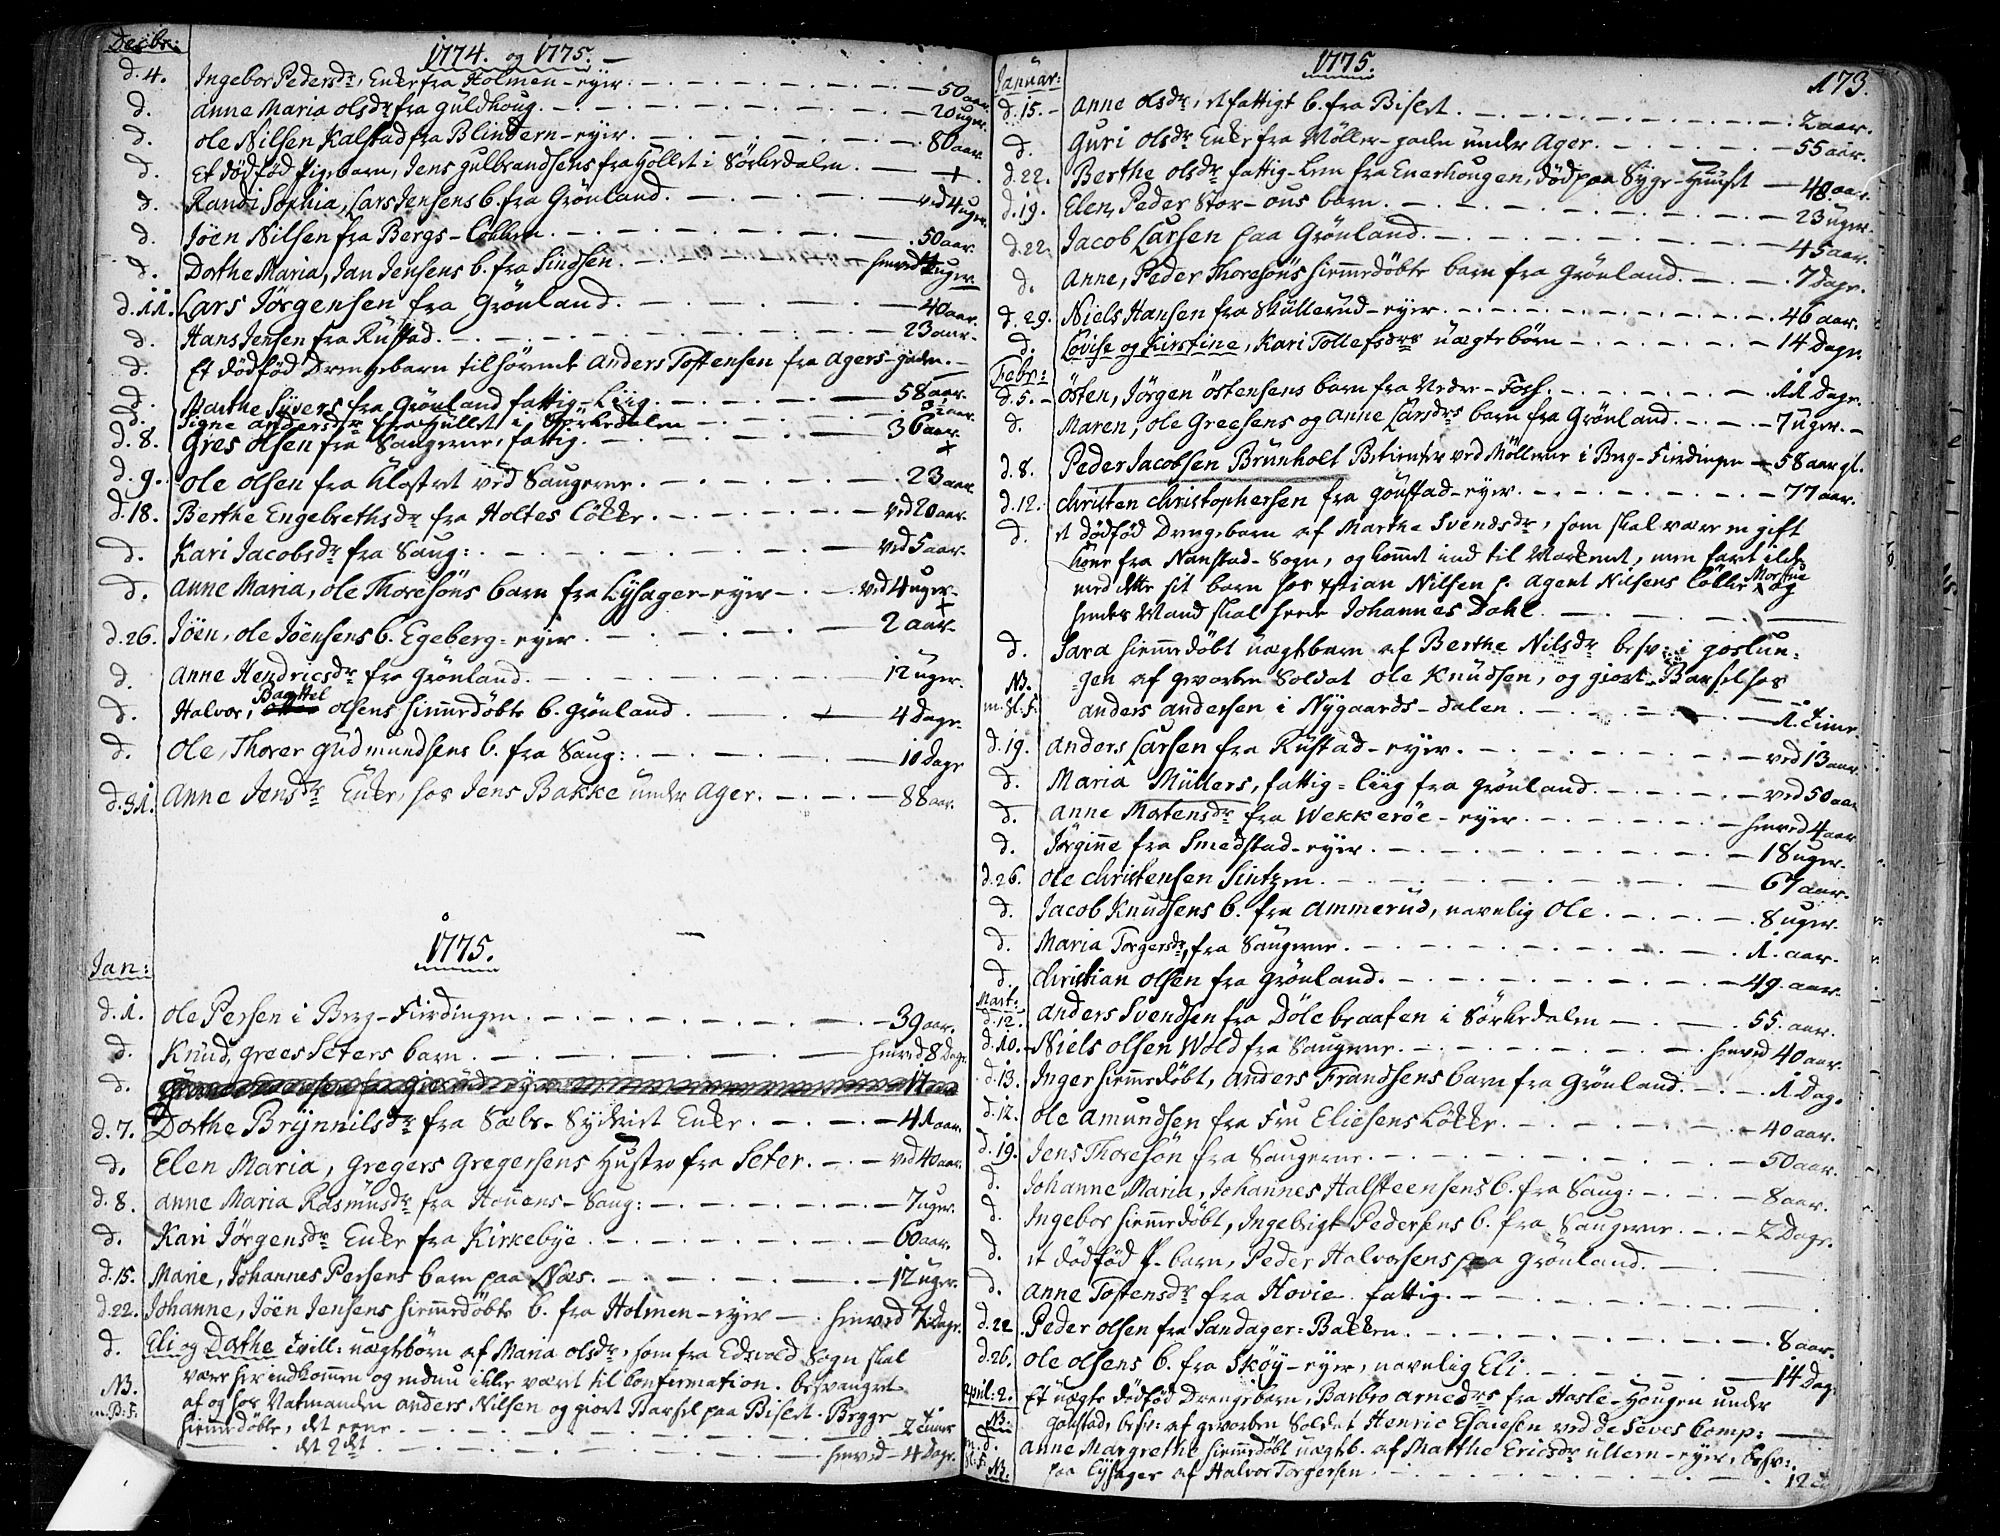 Decbr: 1774. og 1775.
d. 4. Ingebor Pedersdr, Enke fra Holmen-eyer: 50 aar.
d. Anne Maria olsdr fra Guldhoug. 20 uger.
d. Ole Nilsen Kalstad fra Blindern-eyer. 80 aar.
d. Et dödföd Pigebarn, Jens Gulbrandsens fra Hyllet i Sörkedalen +
d. Randi Sophia, Lars Jensens b. fra Grönland. ved 4 uger.
d. Jöen Nilsen fra Bergs-Lökken. 50 aar.
d. Dorthe Maria, Jan Jensens b. fra Sindsen. henved uger
d. 11. Lars Jörgensen fra Grönland. 40 aar.
d. Hans Jensen fra Rüstad. 23 aar.
d. Et dödföd Drengebarn tilhörende Anders Tostensen fra Agers-gaden.
d. Marthe Syvers fra Grönland fattig-Liig. 58 aar.
d. Signe Andersdr fra Hyllet i Sörkedalen aar.
d. 8. Gres Olsen fra Saugerne, fattig. 36 aar.
d. 9. Ole Olsen fra Klostret ved Saugerne. 23 aar.
d. 18. Berthe Engebrethsdr fra Holtes Lökke. ved 20 aar.
d. Kari Jacobsdr fra Saug: ved 5 aar.
d. Anne Maria, Ole Thoresöns barn fra Lysager-eyer ved 4 uger.
d. 26. Jöen, Ole Jöensens b. Egeberg-eyer 2 aar.
d. Anne Hendricsdr fra Grönland. 12 uger.
d. Halvor, olsens hiemmedöbte b. Grönland 4 Dage.
d. Ole, Thorer Gudmundsens b. fra Saug: 10 Dage
d. 31. Anne Jensdr Enke, hos Jens Bakke under Ager. 88 aar.
1775.
Jan:
d. 1. Ole Persen i Berg-Fierdingen 39 aar.
d. Knud, Grees Seters barn henved 8 Dage.
d.
d. 7. Dorthe Brynnilsdr fra Enke. 41 aar.
d. Elen Maria, Gregers Gregersens Hustro fra Seter. ved 40 aar.
d. 8. Anne Maria Rasmusdr fra Saug: 7 uger.
d. Kari Jörgensdr Enke fra Kirkebye 60 aar.
d. 15. Marie, Johannes Persens barn paa Næs. 12 uger.
d. 22. Johanne, Jöen Jensens hiemmedöbte b. fra Holmen-eyer henved 7 Dage.
d. Eli og Dorthe tvill: uægtebörn af Maria Olsdr, som fra Edsvold Sogn skal
NB. være her indkommen og endnu ikke været til Confirmation. besvangret
af og hos Natmanden Anders Nilsen og giort Barsel paa Bisert. Begge
hiemmedöbte, det eene 2 Timer
det 2det henved 4 Dage.
1775. 173.
Januar:
d. 15. Anne Olsdr, et fattigt b. fra Bisert 2 aar.
d. Guri Olsdr Enke fra Möller-gaden under Ager. 55 aar.
d. 22. Berthe Olsdr fattig-Lem fra Enerhougen, död paa Syge-Huuset 48 aar.
d. 19. Elen, Peder Stor-ous barn 23 uger.
d. 22. Jacob Larsen paa Grönland. 45 aar.
d. Anne, Peder Thoresöns hiemmedöbte barn fra Grönland. 7 Dage.
d. 29. Niels Hansen fra Skullerud-eyer. 46 aar.
d. Lovise og Kirstine, Kari Tollefsdrs uægtebörn 14 Dage.
Febr:
d. 5. Östen, Jörgen Östensens barn fra Nedre-Foss. 11 Dage.
d. Maren, Ole Greesens og Anne Larsdrs barn fra Grönland. 7 uger.
d. 8. Peder Jacobsen Brunholt Betienter ved Möllerne i Berg-Fierdingen 58 aar gl.
d. 12. Christen Christophersen fra Goustad-eyer. 77 aar.
d. et dödföd Drengebarn af Marthe Svendsdr, som skal være en gift
kone fra Nanstad-Sogn, og kommet ind til Markenet, men faret ilde
med dette sit barn hos Nilsen p. Agent Nilsens Lökke og
hendes Mand skal heede Johannes Dahl.
d. Sara hiemmedöbt uægtebarn af Berthe Nilsdr besv: i
NB. gen af geworben Soldat Ole Knudsen, og giort Barsel hos
Anders Andersen i Nygaards-dalen 1 Time.
d. 19. Anders Larsen fra Rustad-eyer. ved 13 aar.
d. Maria Mullers, fattig-Liig fra Grönland. ved 50 aar
d. Anne Mortensdr fra Wekkeröe-eyer. henved 4 aar
d. Jörginne fra Smedstad-eyer. 18 uger.
d. 26. Ole Christensen Sintzen. 67 aar.
d. Jacob Knudsens b. fra Ammerud, navnlig Ole. 8 uger.
d. Maria Torgersdr, fra Saugerne. 1. aar.
d. Christian Olsen fra Grönland. 49. aar.
Mart:
d. 12. Anders Svendsen fra i Sörkedalen 55. aar.
d. 10. Niels Olsen Wold fra Saugerne. henved 40 aar.
d. 13. Inger hiemmedöbt, Anders Frandsens barn fra Grönland. 1 Dag.
d. 12. Ole Amundsen fra Fru Eliesens Lökke. 40 aar.
d. 19. Jens Thoresön fra Saugerne. 50 aar.
d. Johanne Maria, Johannes Halsteensens b. fra Saug: 8 aar.
d. Ingebor hiemmedöbt, Ingebrigt Pedersens b. fra Saugerne 2 Dage.
d. et dödföd P. barn, Peder Halvorsens paa Grönland.
d. Anne Tostensdr fra Hovie fattig.
d. 22 Peder Olsen fra Sandager-Bakken. 8 aar.
d. 26. Ole Olsens b. fra Sköy-eyer, navnlig Eli 14 Dage
April: 2. Et uægte dödföd Drengebarn, Barbro Arnedrs fra Hasle-Hougen under
NB. Goustad, besv: af geworben Soldat Henric Esaiesen ved de Seves Comp:
d. Anne Margrethe hiemmedöbt uægteb. af Marthe Ericsdr Ullern-eyer, besv:
NB. paa Lysager af Halvor Torgersen. 12